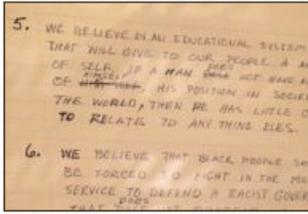 5. WE BELIEVE IN AN EDUCATIONAL SYSTEM
THAT WILL GIVE TO OUR PEOPLE A
OF SELF. IF A MAN DOES NOT HAVE
OF HIMSELF, HIS POSITION IN SOCIE
THE WORLD, THEN HE HAS LITTLE C
TO RELATE TO ANY THING ELES.
6. WE BELIEVE THAT BLACK PEOPLE S
BE FORCED TO FIGHT IN THE MI
SERVICE TO DEFEND A RACIST GOVER
THAT DOES NOT